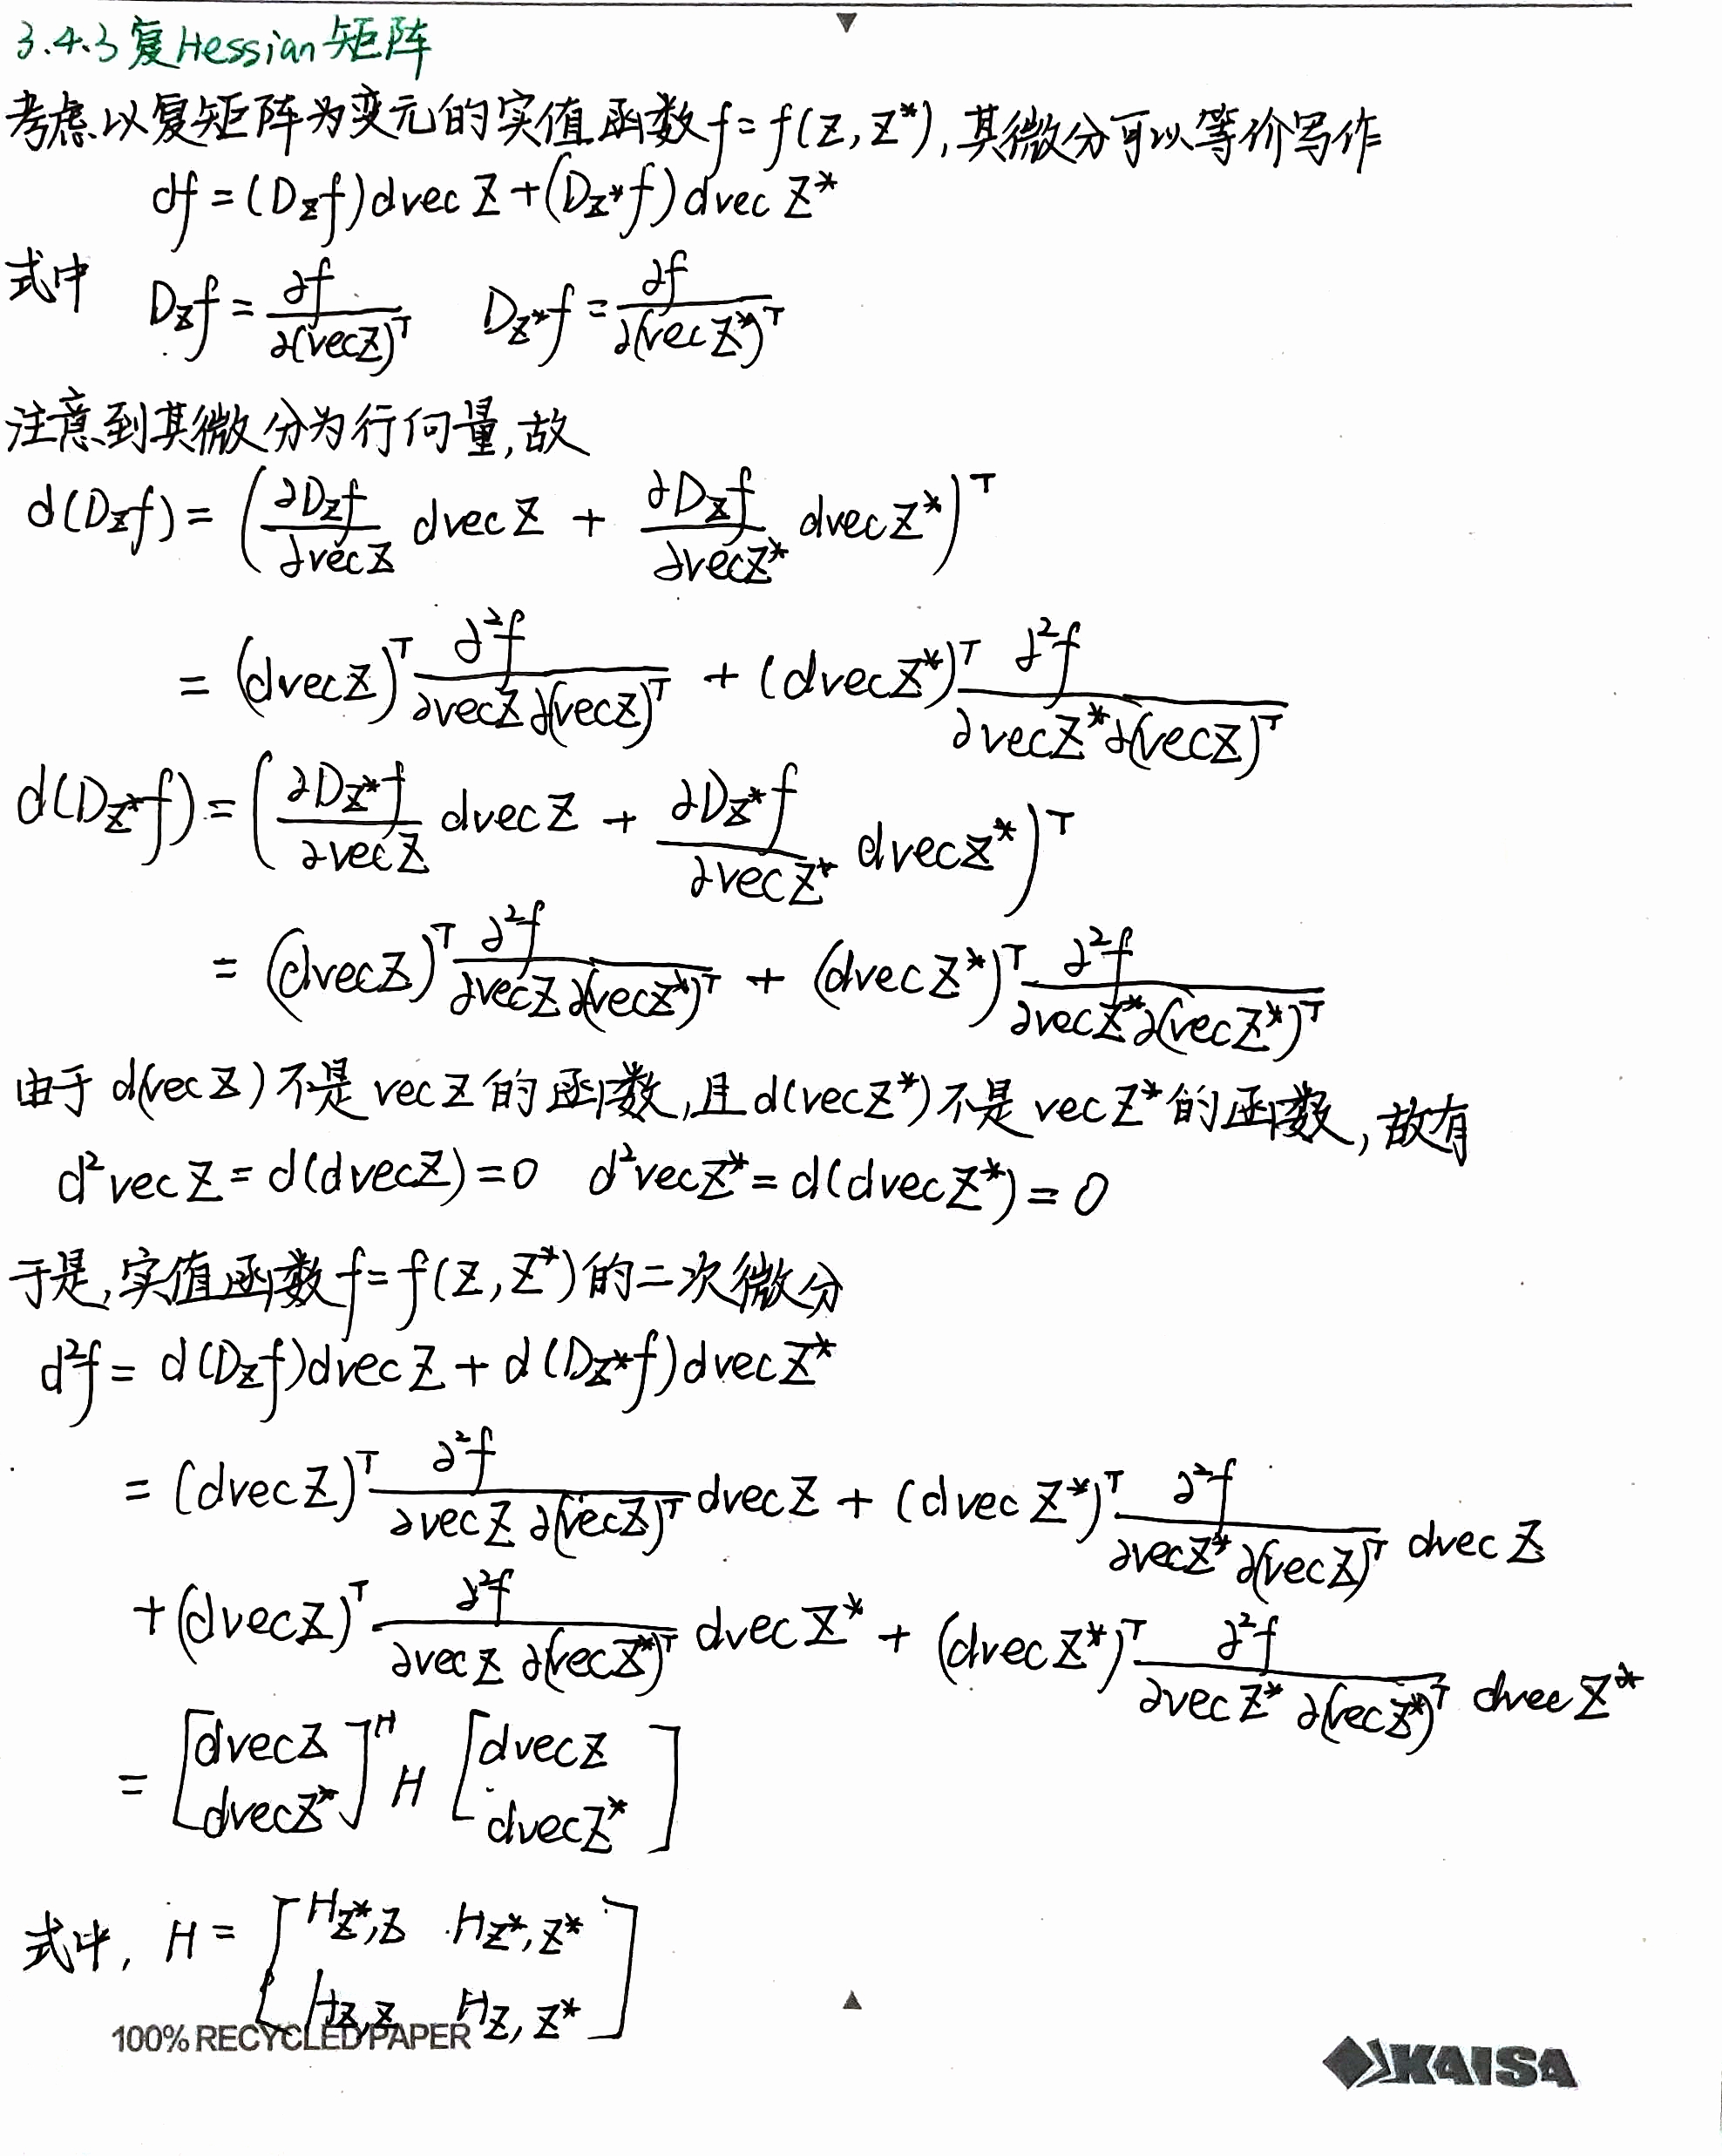 3.4.3 复Hessian矩阵
考虑以复矩阵为变元的实值函数f=f(Z,Z*),其微分可以等价写作
df=(D_Z f)dvecZ+(D_Z* f)dvecZ*
式中 D_Z f=∂f/∂(vecZ)^T D_Z* f=∂f/∂(vecZ*)^T
注意到其微分为行向量,故
d(D_Z f)=(∂D_Z f/∂vecZ dvecZ + ∂D_Z f/∂vecZ* dvecZ*)^T
=(dvecZ)^T ∂²f/∂vecZ∂(vecZ)^T + (dvecZ*)^T ∂²f/∂vecZ*∂(vecZ)^T
d(D_Z* f)=(∂D_Z* f/∂vecZ dvecZ + ∂D_Z* f/∂vecZ* dvecZ*)^T
=(dvecZ)^T ∂²f/∂vecZ∂(vecZ*)^T + (dvecZ*)^T ∂²f/∂vecZ*∂(vecZ*)^T
由于d(vecZ)不是vecZ的函数,且d(vecZ*)不是vecZ*的函数,故有
d²vecZ=d(dvecZ)=0 d²vecZ*=d(dvecZ*)=0
于是,实值函数f=f(Z,Z*)的二次微分
d²f=d(D_Z f)dvecZ+d(D_Z* f)dvecZ*
=(dvecZ)^T ∂²f/∂vecZ∂(vecZ)^T dvecZ + (dvecZ*)^T ∂²f/∂vecZ*∂(vecZ)^T dvecZ
+(dvecZ)^T ∂²f/∂vecZ∂(vecZ*)^T dvecZ* + (dvecZ*)^T ∂²f/∂vecZ*∂(vecZ*)^T dvecZ*
=[dvecZ; dvecZ*]^H H [dvecZ; dvecZ*]
式中, H=[H_Z*,Z H_Z*,Z*; H_Z,Z H_Z,Z*]
100% RECYCLED PAPER
KAISA